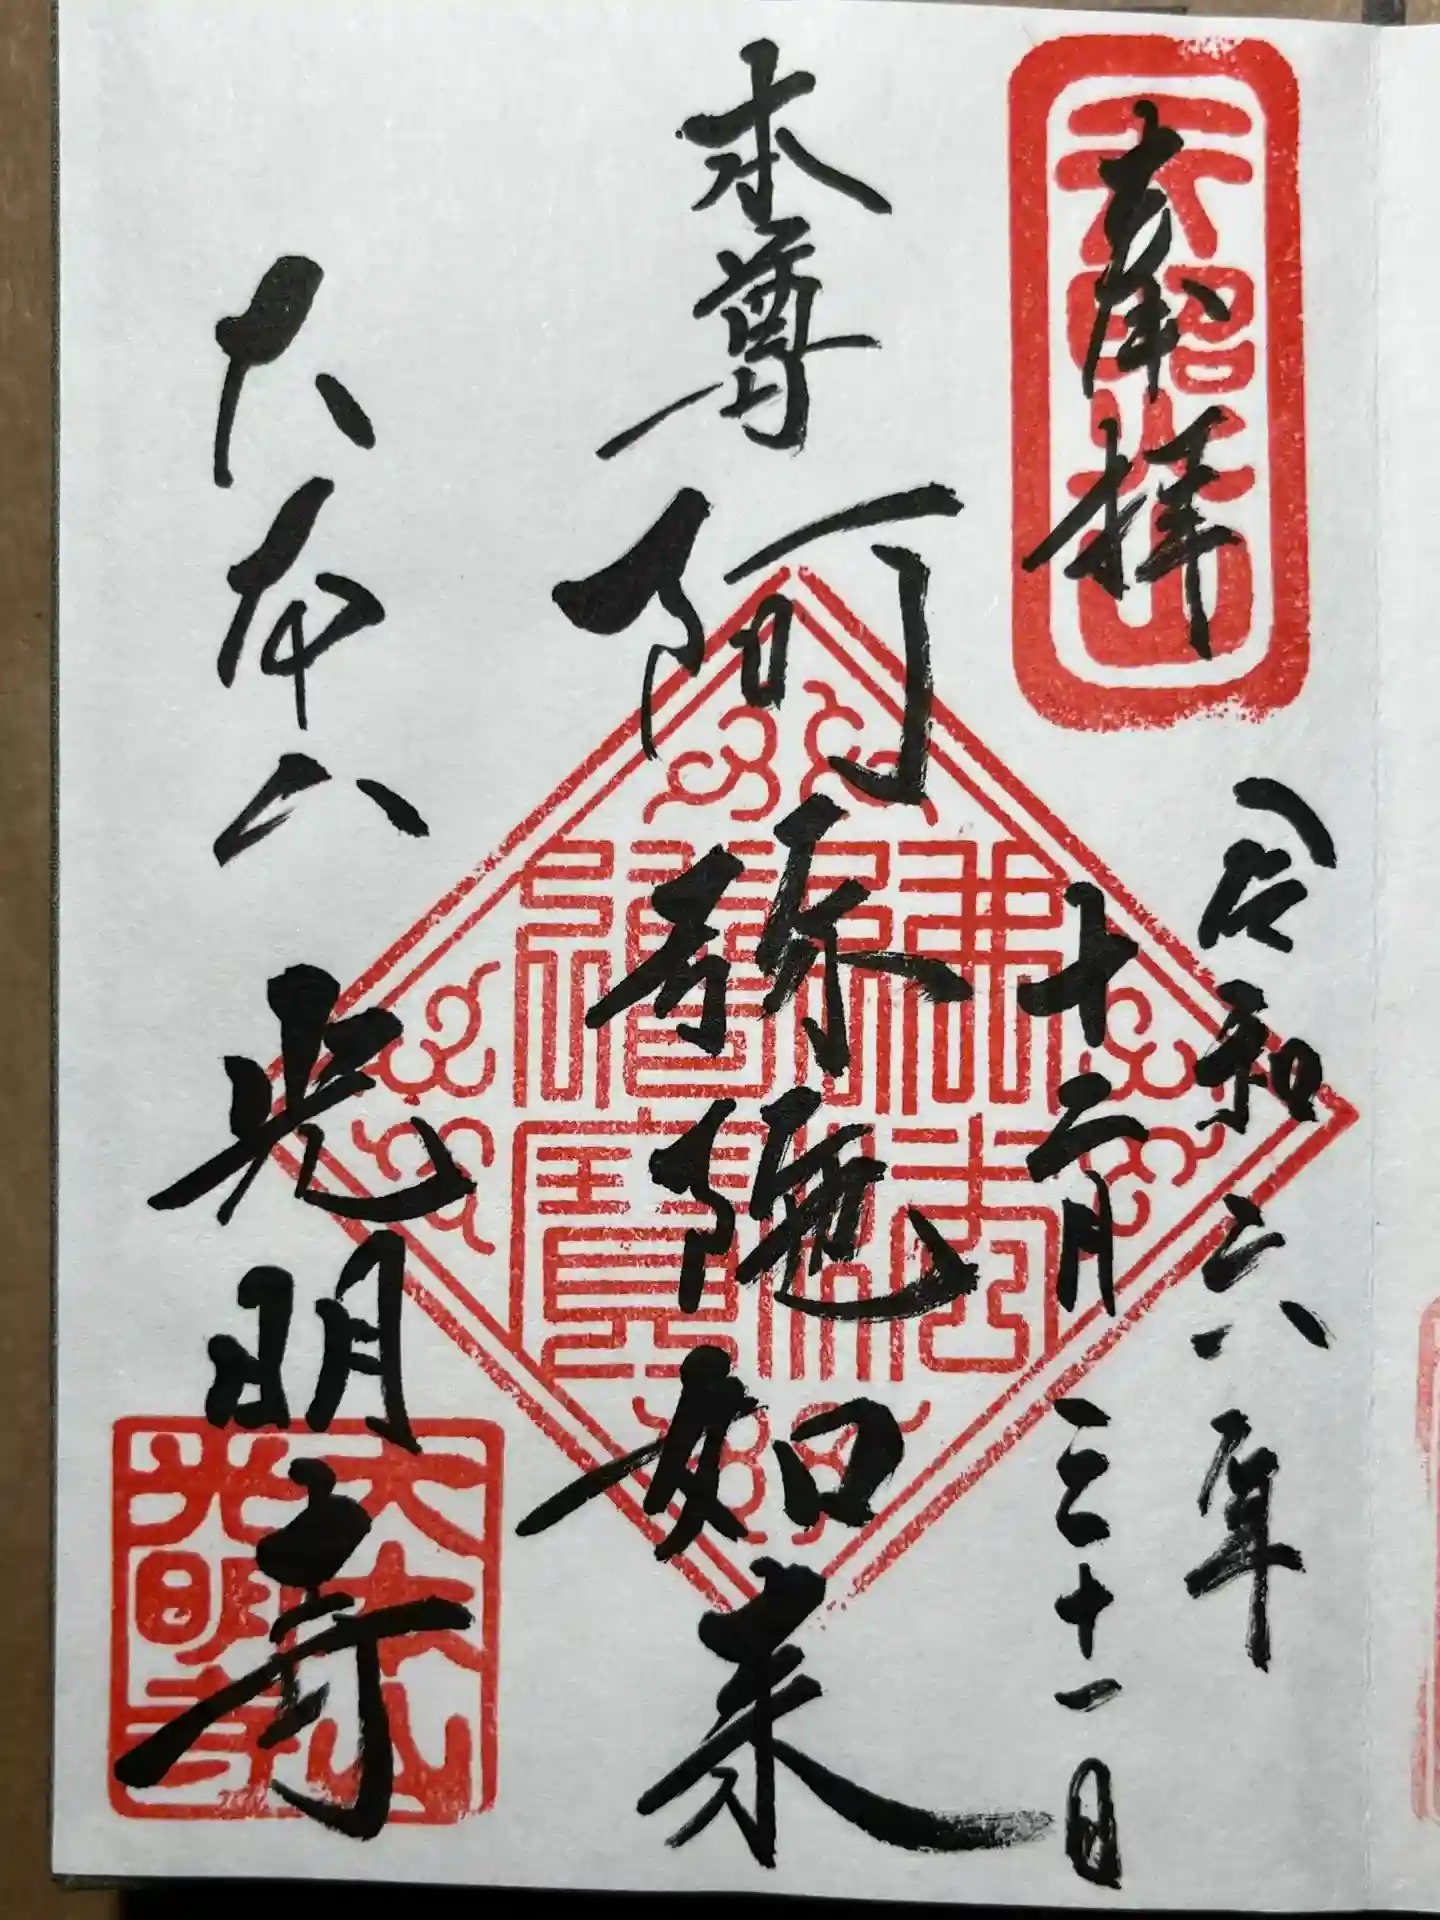 天照山
奉拝
令和六年
十二月三十一日
本尊 阿弥陀如来
佛法僧寶
大本山 光明寺
大本山
光明寺